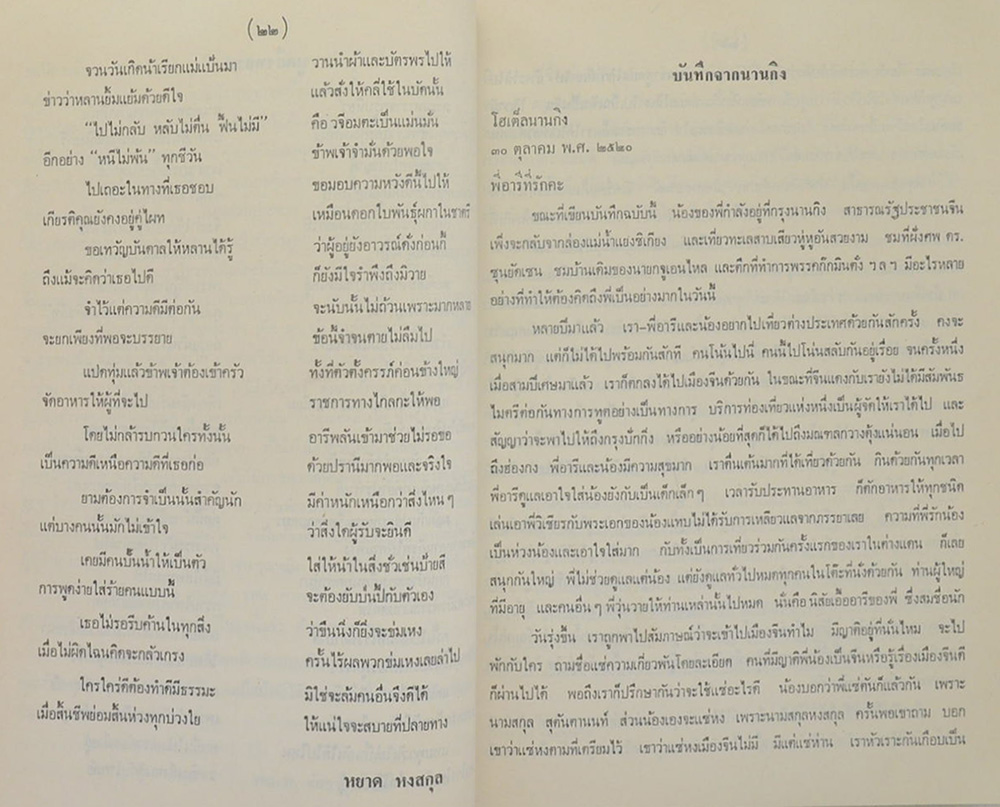 (๒๒)
จวนวันเกิดน้าเรียกแม่แป้นมา วานนำผ้าและบัตรพรไปให้
ข่าวว่าหลานยิ้มแย้มด้วยดีใจ แล้วสั่งให้คลี่ใช้ในบัดนั้น
“ไปไม่กลับ หลับไม่ตื่น ฟื้นไม่มี” คือ วจีอมตะเป็นแม่นมั่น
อีกอย่าง “หนีไม่พ้น” ทุกชีวัน ข้าพเจ้าจำมั่นด้วยพอใจ
ไปเถอะในทางที่เธอชอบ ขอมอบความหวังดีนี้ไปให้
เกียรติคุณยังคงอยู่คู่ไผท เหมือนดอกใบพันธุ์ผกาในธาตรี
ขอเทวัญบันดาลให้หลานได้รู้ ว่าผู้อยู่ยังอาวรณ์ดั่งก่อนกี้
ถึงแม้จะคิดว่าเธอไปดี ก็ยังมีใจรำพึงถึงมิวาย
จำไว้แต่ความดีมีต่อกัน จะนับนั้นไม่ถ้วนเพราะมากหลาย
จะยกเพียงที่พอจะบรรยาย ข้อนี้จำจนตายไม่ลืมไป
แปดทุ่มแล้วข้าพเจ้าต้องเข้าครัว ทั้งที่ตัวตั้งครรภ์ค่อนข้างใหญ่
จัดอาหารให้ผู้ที่จะไป ราชการทางไกลกะให้พอ
โดยไม่กล้ารบกวนใครทั้งนั้น อารีพลันเข้ามาช่วยไม่รอขอ
เป็นความดีเหนือความดีที่เธอก่อ ด้วยปรานีมากพอและจริงใจ
ยามต้องการจำเป็นนั้นสำคัญนัก มีค่าหนักเหนือกว่าสิ่งไหน ๆ
แต่บางคนนั้นมักไม่เข้าใจ ว่าสิ่งใดผู้รับจะยินดี
เคยมีคนปั้นน้ำให้เป็นตัว ใส่ให้น้าในสิ่งชั่วเช่นป้ายสี
การพูดง่ายใส่ร้ายคนแบบนี้ จะต้องยับบี้ปี้กับตัวเอง
เธอไม่รอรีบค้านในทุกสิ่ง ว่าขืนนิ่งก็ยิ่งจะข่มเหง
เมื่อไม่ผิดไฉนคิดจะกลัวเกรง ครั้นไร้ผลพวกข่มเหงเลยล่าไป
ใครใคร่ดีต้องทำดีมีธรรมะ มิใช่จะล้มคนอื่นจึงดีได้
เมื่อสิ้นชีพย่อมสิ้นห่วงทุกบ่วงใย ให้แน่ใจจะสบายที่ปลายทาง
หยาด หงสกุล
บันทึกจากนานกิง
โฮเต็ลนานกิง
๓๐ ตุลาคม พ.ศ. ๒๕๒๐
พี่อารีที่รักคะ
ขณะที่เขียนบันทึกฉบับนี้ น้องของพี่กำลังอยู่ที่กรุงนานกิง สาธารณรัฐประชาชนจีน
เพิ่งจะกลับจากล่องแม่น้ำแยงซิเกียง และเที่ยวทะเลสาบเสียวหู่หูอันสวยงาม ชมที่ฝั่งศพ ดร.
ซุนยัดเซน ชมบ้านเดิมของนายกจูเอนไหล และตึกที่ทำการพรรคก๊กมินตั๋ง ฯ ล ฯ มีอะไรหลาย
อย่างที่ทำให้ต้องคิดถึงพี่เป็นอย่างมากในวันนี้
หลายปีมาแล้ว เรา-พี่อารีและน้องอยากไปเที่ยวต่างประเทศด้วยกันสักครั้ง คงจะ
สนุกมาก แต่ก็ไม่ได้ไปพร้อมกันสักที คนโน้นไปนี่ คนนี้ไปโน่นสลับกันอยู่เรื่อย จนครั้งหนึ่ง
เมื่อสามปีเศษมาแล้ว เราก็ตกลงได้ไปเมืองจีนด้วยกัน ในขณะที่จีนแดงกับเรายังไม่ได้มีสัมพันธ
ไมตรีต่อกันทางการทูตอย่างเป็นทางการ บริการท่องเที่ยวแห่งหนึ่งเป็นผู้จัดให้เราได้ไป และ
สัญญาว่าจะพาไปให้ถึงกรุงปักกิ่ง หรืออย่างน้อยที่สุดก็ได้ไปถึงมณฑลกวางตุ้งแน่นอน เมื่อไป
ถึงฮ่องกง พี่อารีและน้องมีความสุขมาก เราตื่นเต้นมากที่ได้เที่ยวด้วยกัน กินด้วยกันทุกเวลา
พี่อารีดูแลเอาใจใส่น้องยังกับเป็นเด็กเล็ก ๆ เวลารับประทานอาหาร ก็ตักอาหารให้ทุกชนิด
เล่นเอาพี่วิเชียรกับพระเอกของน้องแทบไม่ได้รับการเหลียวแลจากภรรยาเลย ความที่พี่รักน้อง
เป็นห่วงน้องและเอาใจใส่มาก กับทั้งเป็นการเที่ยวร่วมกันครั้งแรกของเราในต่างแดน ก็เลย
สนุกกันใหญ่ พี่ไม่ช่วยดูแลแต่น้อง แต่ยังดูแลทั่วไปหมดทุกคนในโต๊ะที่นั่งด้วยกัน ท่านผู้ใหญ่
ที่มีอายุ และคนอื่น ๆ พี่วุ่นวายให้ท่านเหล่านั้นไปหมด นั่นคือ นิสัยเอื้ออารีของพี่ ซึ่งสมชื่อนัก
วันรุ่งขึ้น เราถูกพาไปสัมภาษณ์ว่าจะเข้าไปเมืองจีนทำไม มีญาติอยู่ที่นั่นไหม จะไป
พักกับใคร ถามชื่อแซ่ความเกี่ยวพันโดยละเอียด คนที่มีญาติพี่น้องเป็นจีนหรือรู้เรื่องเมืองจีนดี
ก็ผ่านไปได้ พอถึงเราก็ปรึกษากันว่าจะใช้แซ่อะไรดี น้องบอกว่าพี่แซ่ตันก็แล้วกัน เพราะ
นามสกุล สุตันตานนท์ ส่วนน้องเองจะแซ่หง เพราะนามสกุลหงสกุล ครั้นพอเขาถาม บอก
เขาว่าแซ่หงตามที่เตรียมไว้ เขาว่าแซ่หงเมืองจีนไม่มี มีแต่แซ่ห่าน เราหัวเราะกันเกือบเป็น